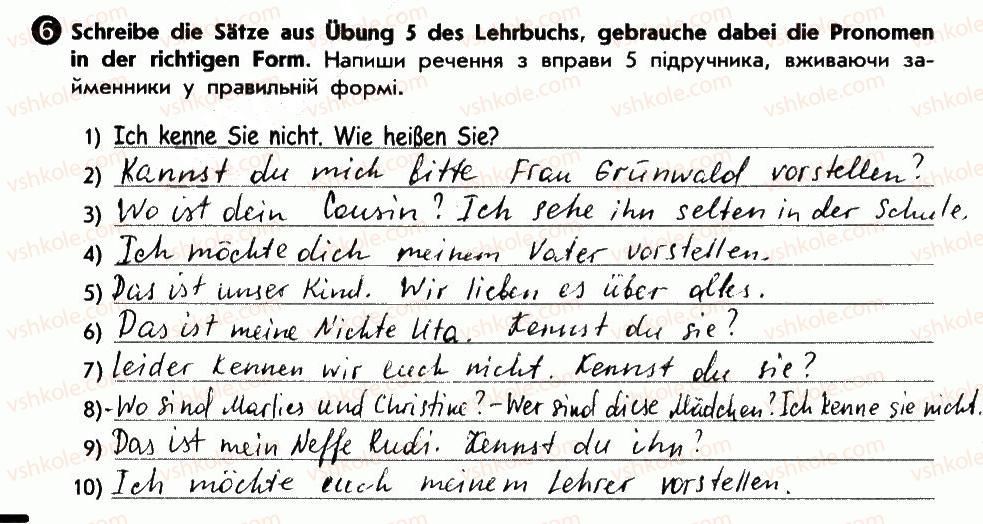 6 Schreibe die Sätze aus Übung 5 des Lehrbuchs, gebrauche dabei die Pronomen
in der richtigen Form. Напиши речення з вправи 5 підручника, вживаючи за-
йменники у правильній формі.
1) Ich kenne Sie nicht. Wie heißen Sie?
2) Kannst du mich bitte Frau Grünwald vorstellen?
3) Wo ist dein Cousin? Ich sehe ihn selten in der Schule.
4) Ich möchte dich meinem Vater vorstellen.
5) Das ist unser Kind. Wir lieben es über alles.
6) Das ist meine Nichte Uta. Kennst du sie?
7) leider kennen wir euch nicht. Kennst du sie?
8) - Wo sind Marlies und Christine? - Wer sind diese Mädchen? Ich kenne sie nicht.
9) Das ist mein Neffe Rudi. Kennst du ihn?
10) Ich möchte euch meinem Lehrer vorstellen.
vshkole.com